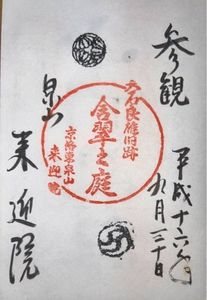 参観
平成十六年
九月二十日
大石良雄旧跡
含翠之庭
京都東泉山
来迎院
泉山
来迎院